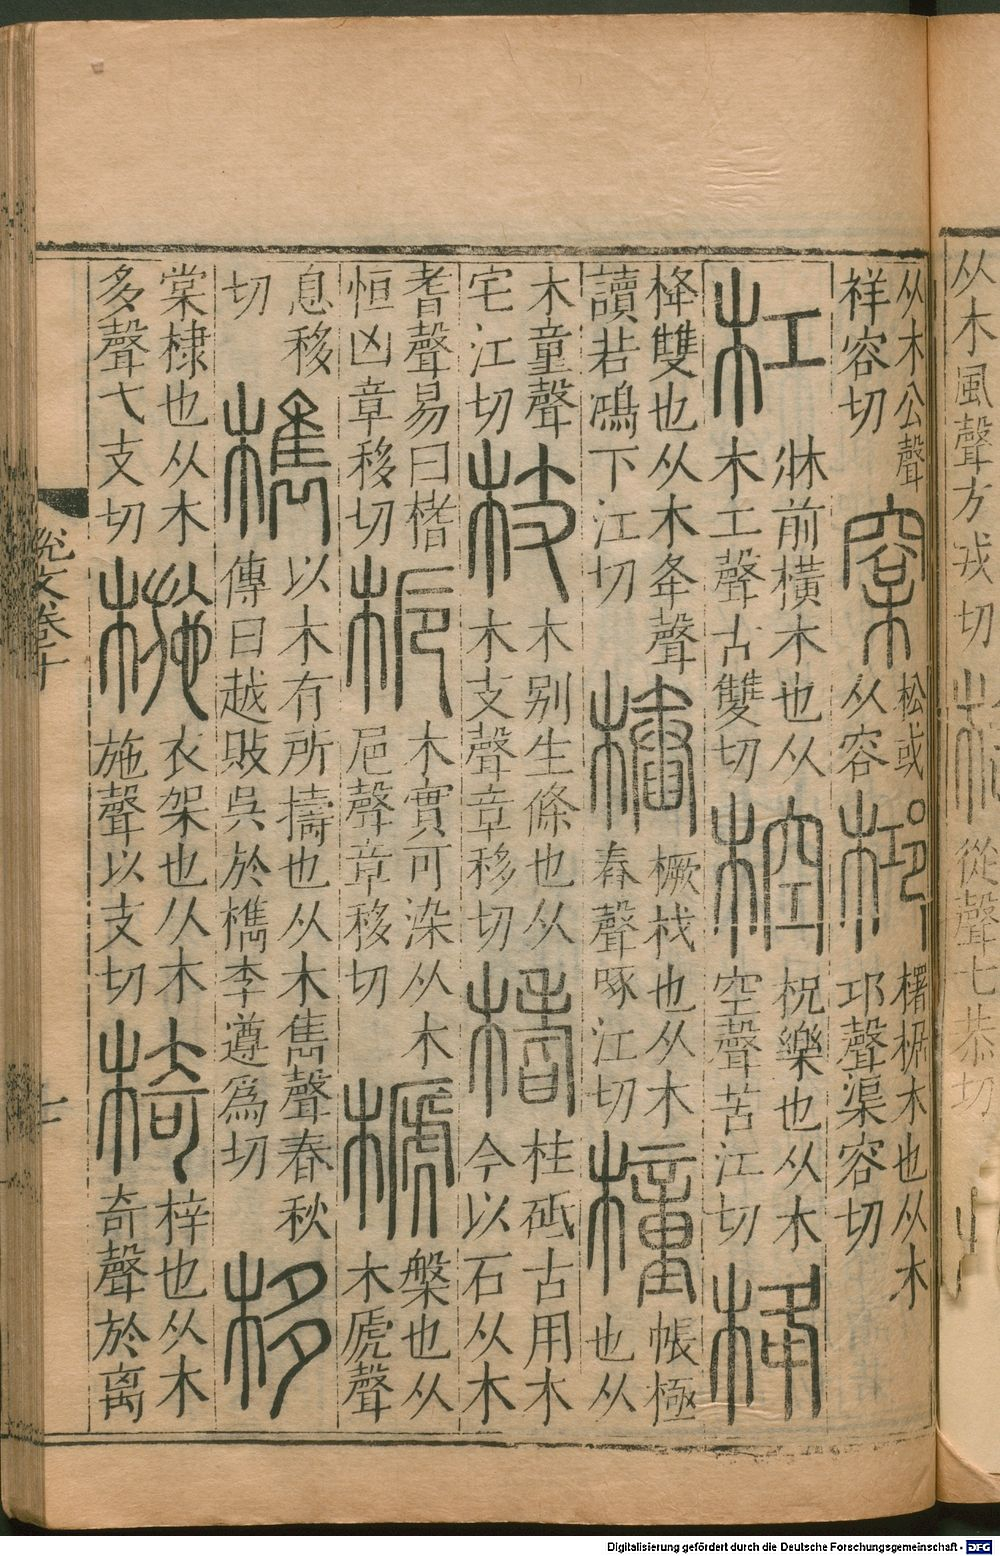 从木公聲
祥容切
㮤
松或
从容
枊
欋椐木也从木
邛聲渠容切
杠
牀前橫木也从
木工聲古雙切
椌
柷樂也从木
空聲苦江切
栙
栙雙也从木夅聲
讀若鴻下江切
椿
橛杙也从木
舂聲啄江切
橦
帳極
也从
木童聲
宅江切
枝
木别生條也从
木支聲章移切
榰
柱砥古用木
今以石从木
耆聲易曰榰
恒凶章移切
梔
木實可染从木
巵聲章移切
榹
槃也从
木虒聲
息移
切
檇
以木有所擣也从木雋聲春秋
傳曰越敗吳於檇李遵為切
栘
棠棣也从木
多聲弋支切
椸
衣架也从木
施聲以支切
椅
梓也从木
奇聲於离
說文卷十
十
从木風聲方戎切
樅
從聲七恭切
Digitalisierung gefördert durch die Deutsche Forschungsgemeinschaft - DFG